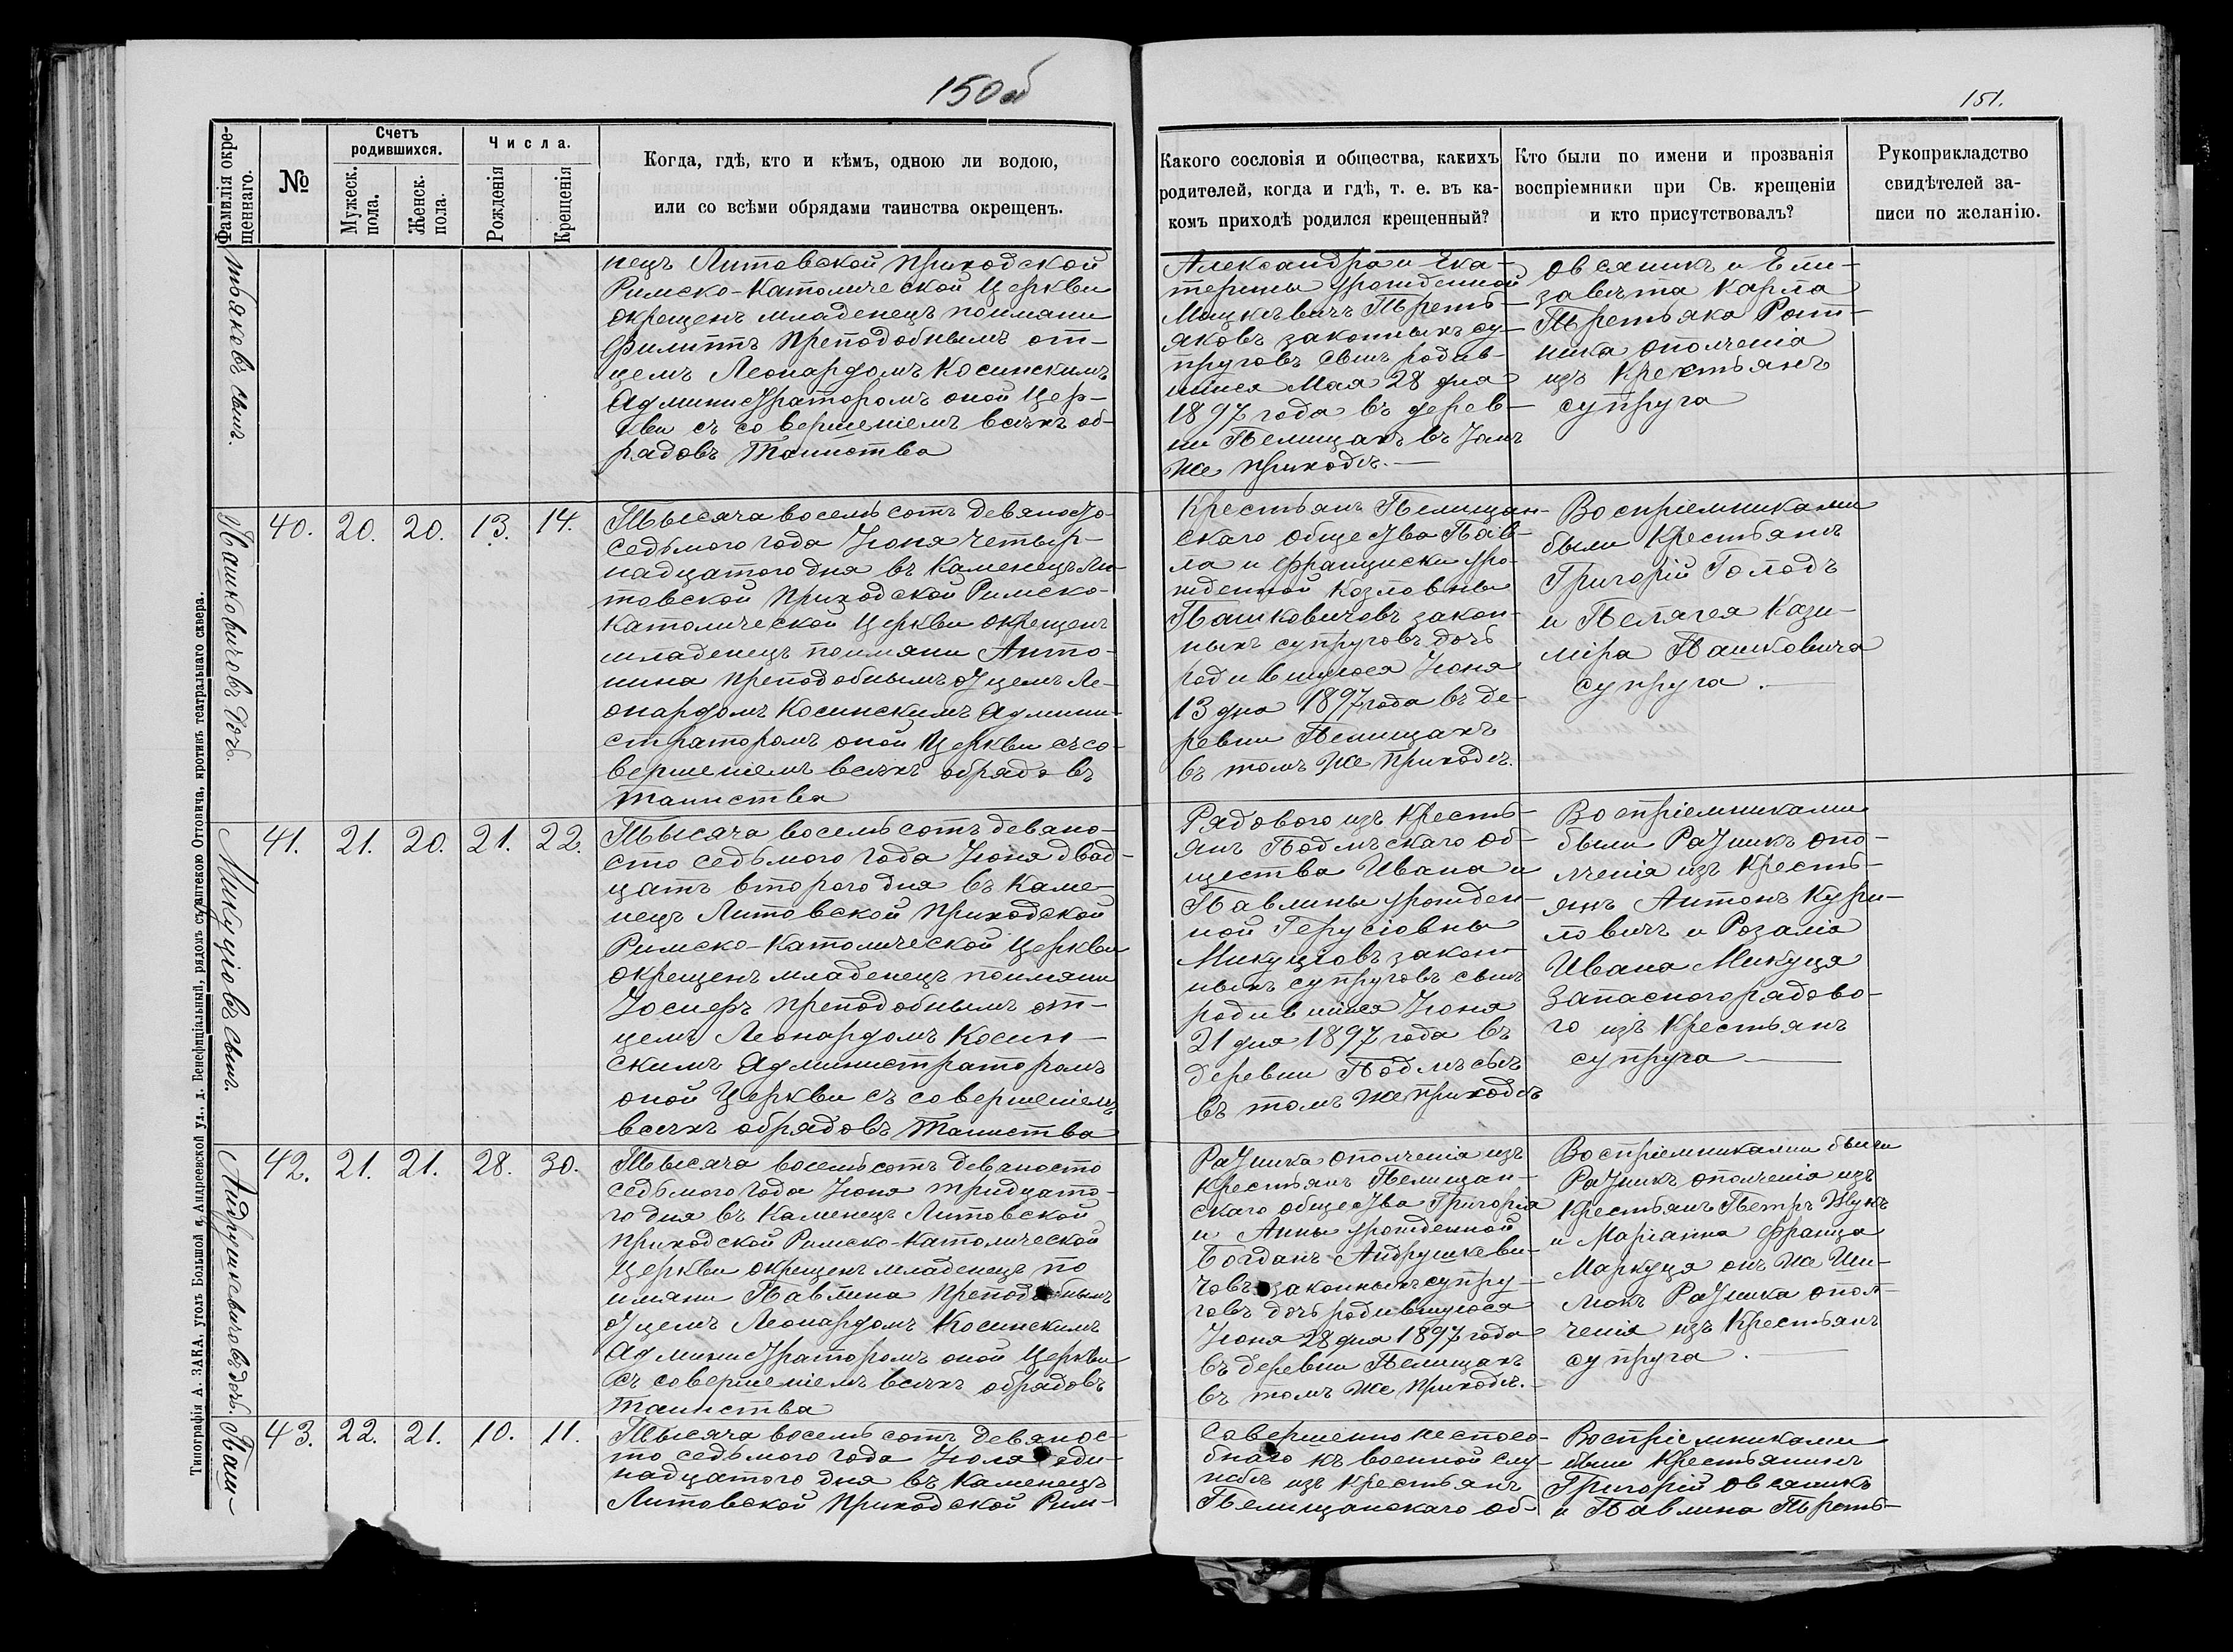 150 об
151.
Фамилія окре-
щеннаго.
№
Счетъ
родившихся.
Мужеск.
пола.
Женск.
пола.
Числа.
Рожденія
Крещенія
Когда, гдѣ, кто и кѣмъ, одною ли водою,
или со всѣми обрядами таинства окрещенъ.
Какого сословія и общества, какихъ
родителей, когда и гдѣ, т. е. въ ка-
комъ приходѣ родился крещенный?
Кто были по имени и прозванія
воспріемники при Св. крещеніи
и кто присутствовалъ?
Рукоприкладство
свидѣтелей за-
писи по желанію.
тьяковъ сынъ.
нецъ Литовской приходской
Римско-Католической Церкви
окрещенъ младенецъ поимяни
Филиппъ преподобнымъ от-
цемъ Леонардомъ Косинскимъ
Администраторомъ оной Цер-
кви съ совершеніемъ всѣхъ об-
рядовъ Таинства
Александра и Ека-
терины урожденной
Мицкевичъ Преть-
яковъ законныхъ су-
пруговъ сынъ родив-
шійся Мая 28 дня
1897 года въ дерев-
ни Пелищахъ въ томъ
же приходѣ.
Овсяникъ и Ели-
завета Карла
Третьяка Рат-
ника ополченія
изъ Крестьянъ
супруга
Пашковичовъ дочь.
40. 20. 20. 13. 14.
Тысяча восемьсотъ девяносто
седьмого года Іюня четыр-
надцатого дня въ Каменецъ Ли-
товской приходской Римско-
Католической Церкви окрещенъ
младенецъ поимяни Анто-
нина преподобнымъ отцемъ Ле-
онардомъ Косинскимъ Админи-
страторомъ оной Церкви съ со-
вершеніемъ всѣхъ обрядовъ
Таинства
Крестьянъ Пелищан-
скаго общества Пав-
ла и Франциски уро-
жденной Козловны
Пашковичовъ закон-
ныхъ супруговъ дочь
родившуюся Іюня
13 дня 1897 года въ де-
ревни Пелищахъ
въ томъ же приходѣ.
Воспріемниками
были Крестьянъ
Григорій Голодъ
и Пелагея Кази-
міра Пашковича
супруга.
Микуціовъ сынъ.
41. 21. 20. 21. 22.
Тысяча восемьсотъ девяно-
сто седьмого года Іюня двад-
цать второго дня въ Каме-
нецъ Литовской приходской
Римско-Католической Церкви
окрещенъ младенецъ поимяни
Іосифъ преподобнымъ от-
цемъ Леонардомъ Косин-
скимъ Администраторомъ
оной Церкви съ совершеніемъ
всѣхъ обрядовъ Таинства
Рядового изъ Кресть-
янъ Подлѣскаго об-
щества Ивана и
Павлины урожден-
ной Герусіовны
Микуціовъ закон-
ныхъ супруговъ сынъ
родившійся Іюня
21 дня 1897 года въ
деревни Подлѣсьѣ
въ томъ же приходѣ
Воспріемниками
были Ратникъ опо-
лченія изъ Кресть-
янъ Антонъ Кури-
ловичъ и Розалія
Ивана Микуця
Запасного рядово-
го изъ Крестьянъ
супруга
Андрушкевичовъ дочь.
42. 21. 21. 28. 30.
Тысяча восемьсотъ девяносто
седьмого года Іюня тридцато-
го дня въ Каменецъ Литовской
приходской Римско-Католической
Церкви окрещенъ младенецъ по
имяни Павлина преподобнымъ
отцемъ Леонардомъ Косинскимъ
Администраторомъ оной Церкви
съ совершеніемъ всѣхъ обрядовъ
Таинства
Ратника ополченія изъ
Крестьянъ Пелищан-
скаго общества Григорія
и Анны урожденной
Богданъ Андрушкеви-
човъ законныхъ супру-
говъ дочь родившуюся
Іюня 28 дня 1897 года
въ деревни Пелищахъ
въ томъ же приходѣ.
Воспріемниками были
Ратникъ ополченія изъ
Крестьянъ Петръ Жукъ
и Маріанна Франца
Маркуця онъ же Ши-
мокъ Ратника опол-
ченія изъ Крестьянъ
супруга.
Паш-
43. 22. 21. 10. 11.
Тысяча восемьсотъ девянос-
то седьмого года Іюля оди-
надцатого дня въ Каменецъ
Литовской приходской Рим-
Совершенно неспосо-
бнаго къ военной слу-
жбѣ изъ Крестьянъ
Пелищанскаго об-
Воспріемниками
были Крестьянинъ
Григорій Овсяникъ
и Павлина Преть-
Типографія А. ЗАКА, уголъ Большой и Андреевской ул., д. Бенефиціальный, рядомъ съ аптекою Оттовича, кротивъ театральнаго сквера.